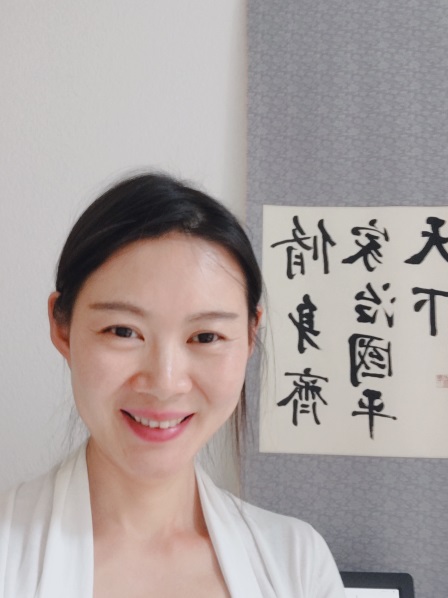 脩身齊
家治國平
天下